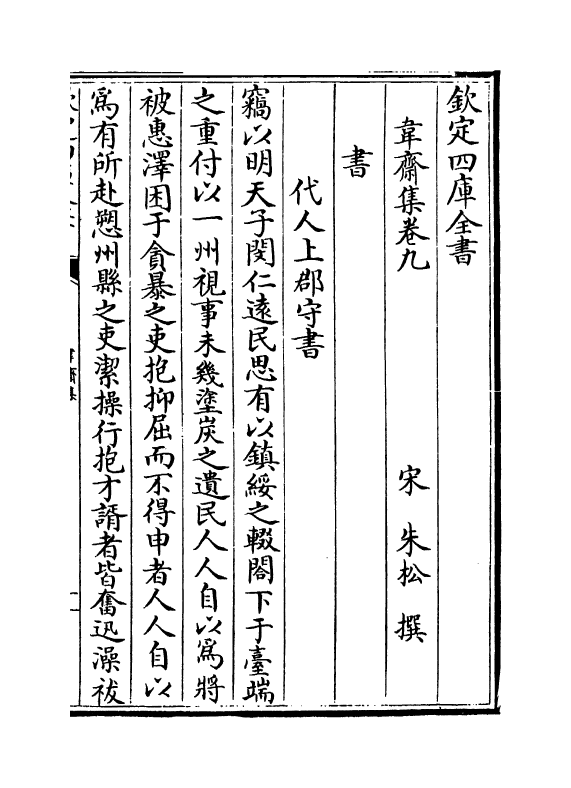 欽定四庫全書
韋齋集卷九
宋 朱松 撰
書
代人上郡守書
竊以明天子閔仁遠民思有以鎮綏之輟閤下于臺端
之重付以一州視事未幾塗炭之遺民人人自以為將
被惠澤困于貪暴之吏抱抑屈而不得申者人人自以
為有所赴愬州縣之吏潔操行抱才諝者皆奮迅澡祓